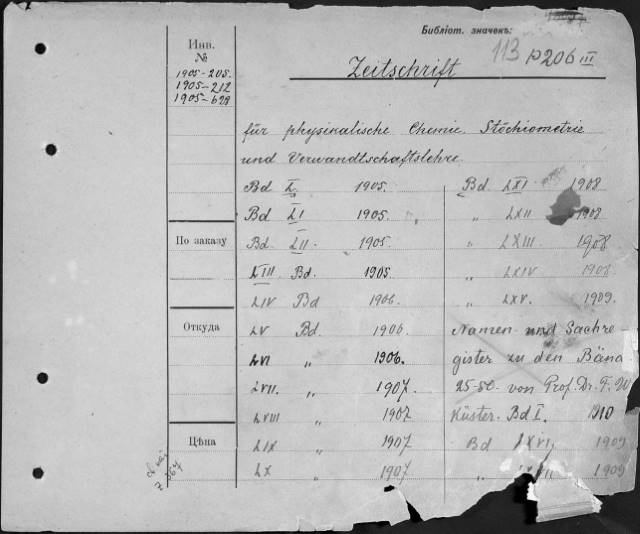 Библіот. значекъ:
113 P206 III
Инв.
№
1905-205.
1905-212
Zeitschrift
für physikalische Chemie. Stöchiometrie
und Verwandtschaftslehre.
Bd L. 1905.
Bd LI 1905.
Bd. LII. 1905.
LIII Bd. 1905.
LIV Bd 1906.
LV Bd. 1906.
LVI „ 1906.
LVII. „ 1907.
LVIII „ 1907
LIX „ 1907
LX „ 1907
Bd LXI 1908
„ LXII 1908
„ LXIII 1908
„ LXIV 1908.
„ LXV. 1909.
Namen- und Sachre
gister zu den Bänd
25-50 von Prof. Dr. F. W
Küster. Bd I. 1910
Bd LXVI 1909
„ 1909
По заказу
Откуда
Цѣна